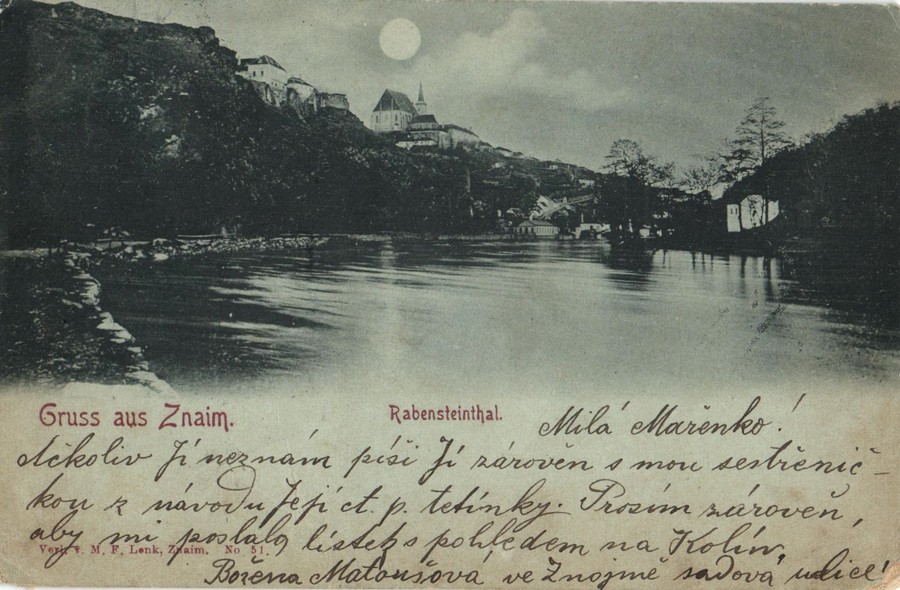 Gruss aus Znaim.
Rabensteinthal.
Milá Mařenko!
Ačkoliv Jí neznám píši Jí zároveň s mou sestřenič-
kou z návodu Její ct. p. tetinky. Prosím zároveň,
aby mi poslala lístek s pohledem na Kolín,
Verl. v. M. F. Lenk, Znaim. No 51.
Božena Matoušova ve Znojmě sadová ulice!